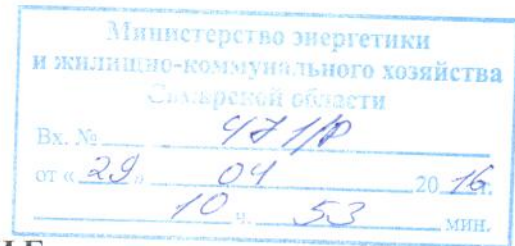 Министерство энергетики
и жилищно-коммунального хозяйства
Самарской области
Вх. № 471/Р
от « 29 » 04 20 16 г.
10 ч. 53 мин.